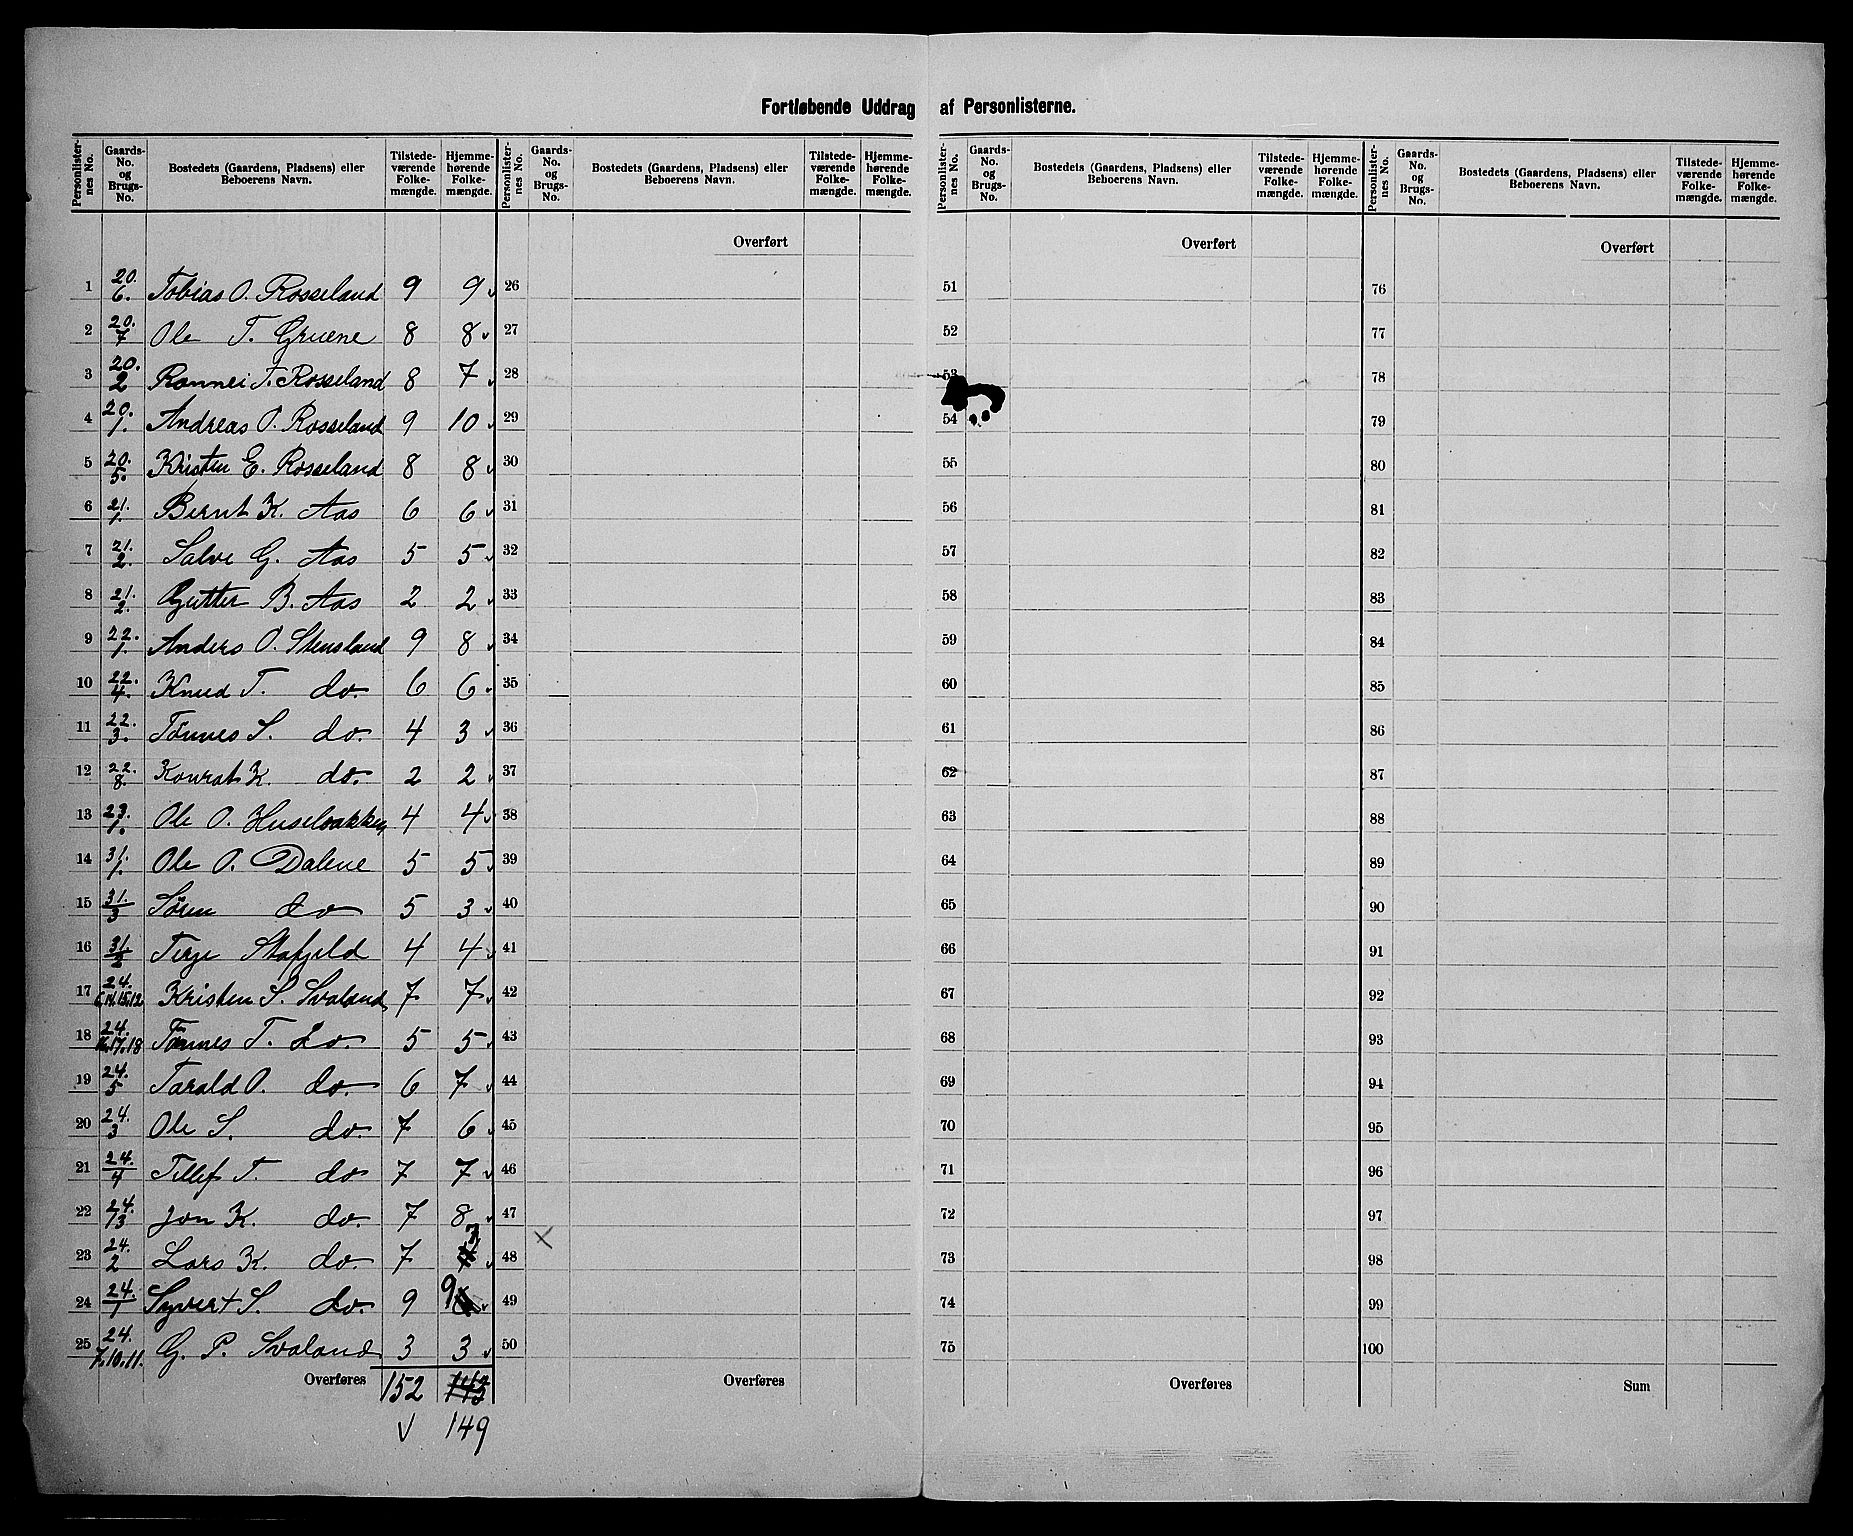 Fortløbende Uddrag af Personlisterne.
Personlister-nes No. Gaards-No. og Brugs-No. Bostedets (Gaardens, Pladsens) eller Beboerens Navn. Tilstede-værende Folke-mængde. Hjemme-hørende Folke-mængde. Personlister-nes No. Gaards-No. og Brugs-No. Bostedets (Gaardens, Pladsens) eller Beboerens Navn. Tilstede-værende Folke-mængde. Hjemme-hørende Folke-mængde. Personlister-nes No. Gaards-No. og Brugs-No. Bostedets (Gaardens, Pladsens) eller Beboerens Navn. Tilstede-værende Folke-mængde. Hjemme-hørende Folke-mængde. Personlister-nes No. Gaards-No. og Brugs-No. Bostedets (Gaardens, Pladsens) eller Beboerens Navn. Tilstede-værende Folke-mængde. Hjemme-hørende Folke-mængde.
Overført Overført Overført
1 20./6. Tobias O. Rosseland 9 9 26 51 76
2 20./7 Ole T. Gruene 8 8 27 52 77
3 20./2 Ronnei T. Rosseland 8 7 28 53 78
4 20./1. Andreas O. Rosseland 9 10 29 54 79
5 20./5. Kristen E. Rosseland 8 8 30 55 80
6 21./1. Bernt K. Aas 6 6 31 56 81
7 21./2. Salve G. Aas 5 5 32 57 82
8 21./2. Gutter B. Aas 2 2 33 58 83
9 22./1. Anders O. Stensland 9 8 34 59 84
10 22./4. Knud T. do. 6 6 35 60 85
11 22./3. Tönnes S. do. 4 3 36 61 86
12 22./8. Konrat K. do. 2 2 37 62 87
13 23./1. Ole O. Huselbakken 4 4 38 63 88
14 31/1. Ole O. Dalene 5 5 39 64 89
15 31./3 Søren do 5 3 40 65 90
16 31./2 Terje Stafjeld 4 4 41 66 91
17 24./14.15.12 Kristen S. Svaland 7 7 42 67 92
18 24./17.18 Tönnes T. do. 5 5 43 68 93
19 24./5 Tarald O. do. 6 7 44 69 94
20 24./3 Ole S. do. 7 6 45 70 95
21 24./4 Tellef T. do 7 7 46 71 96
22 24./13 Jon K. do. 7 8 47 72 97
23 24./2 Lars K. do. 7 7 48 73 98
24 24./1 Syvert S. do. 9 9 49 74 99
25 24./7.10.11. G. P. Svaland 3 3 50 75 100
Overføres 152 Overføres Overføres Sum
149